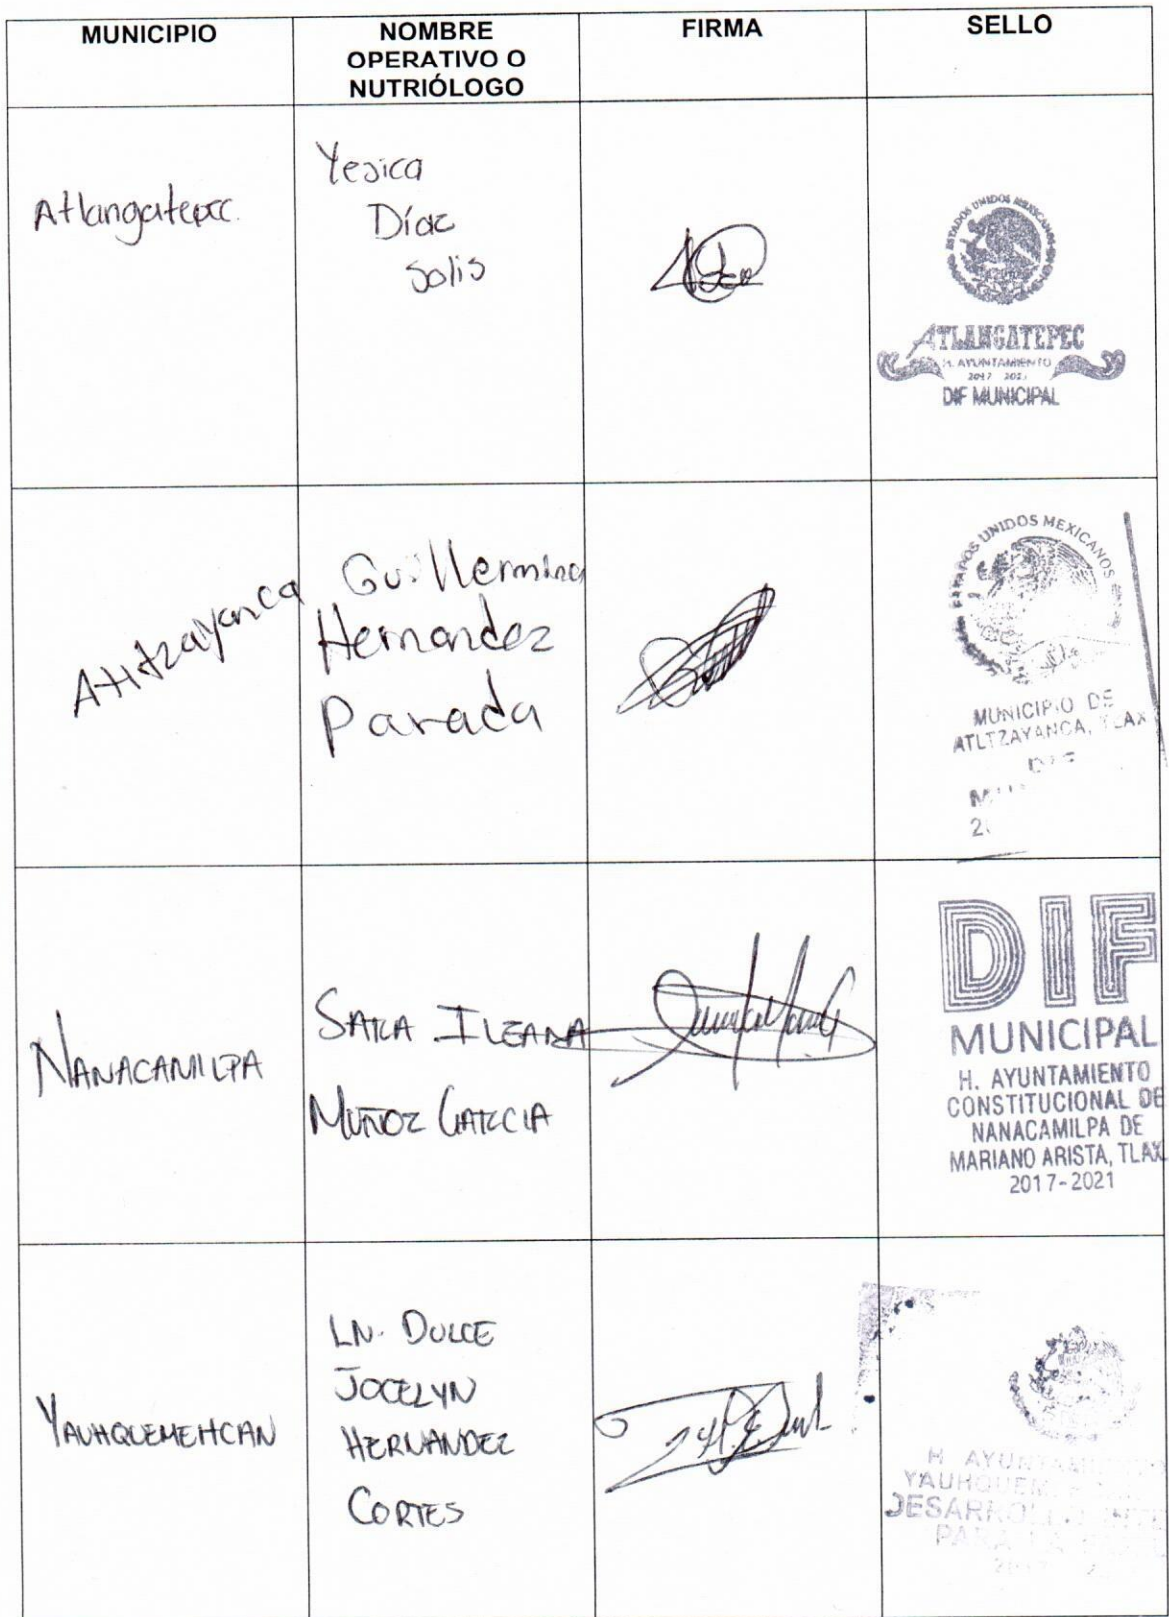 MUNICIPIO
NOMBRE
OPERATIVO O
NUTRIÓLOGO
FIRMA
SELLO
Atlangatepec.
Yesica
Díaz
Solis
ESTADOS UNIDOS MEXICANOS
ATLANGATEPEC
H. AYUNTAMIENTO
2017 2021
DIF MUNICIPAL
Atltzayanca
Guillermina
Hernandez
Parada
ESTADOS UNIDOS MEXICANOS
MUNICIPIO DE
ATLTZAYANCA, TLAX
DIF
NANACAMILPA
SARA ILEANA
MUÑOZ GARCIA
DIF
MUNICIPAL
H. AYUNTAMIENTO
CONSTITUCIONAL DE
NANACAMILPA DE
MARIANO ARISTA, TLAX.
2017-2021
YAUHQUEMEHCAN
LN. DULCE
JOCELYN
HERNANDEZ
CORTES
H AYUNTAMIENTO
DESARROLLO
PARA LA